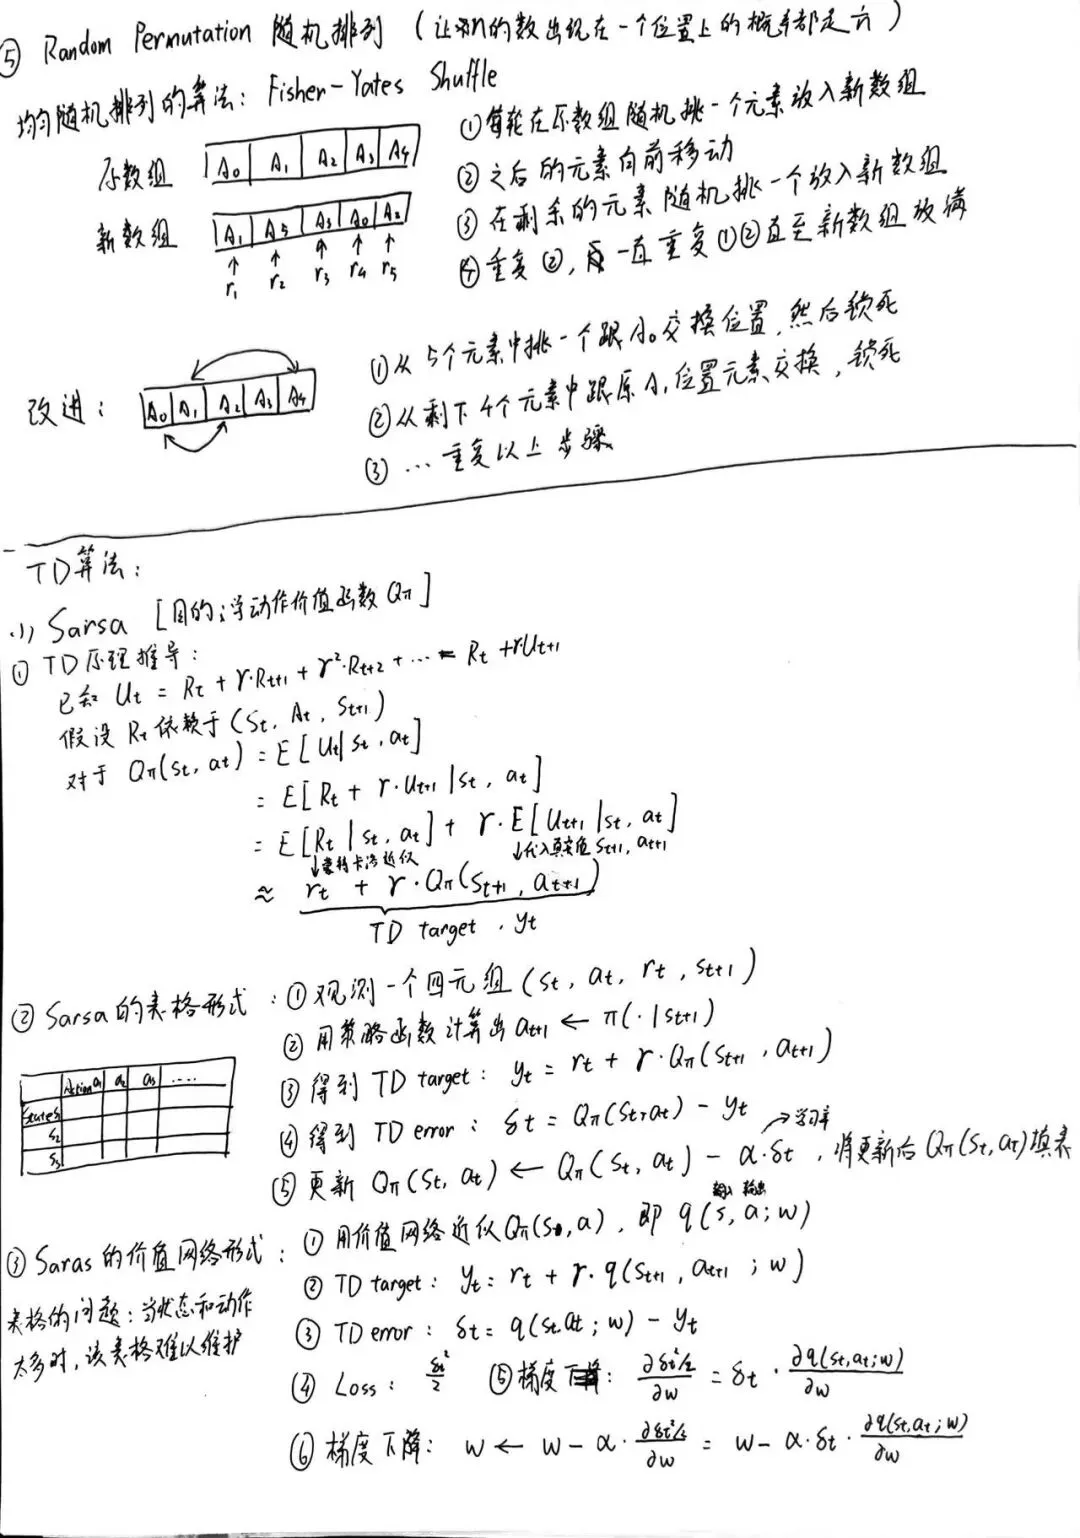 ⑤ Random Permutation 随机排列 (让n的数出现在一个位置上的概率都是 1/n)
均匀随机排列的算法: Fisher-Yates Shuffle
原数组 A0 A1 A2 A3 A4
新数组 A1 A5 A3 A0 A2
r1 r2 r3 r4 r5
①每轮在原数组随机挑一个元素放入新数组
②之后的元素向前移动
③在剩余的元素随机挑一个放入新数组
④重复②, 一直重复①②直至新数组放满
改进: A0 A1 A2 A3 A4
①从5个元素中挑一个跟A0交换位置,然后锁死
②从剩下4个元素中跟原A1位置元素交换,锁死
③ … 重复以上步骤
TD算法:
(1) Sarsa [目的:学动作价值函数Qπ]
① TD原理推导:
已知 Ut = Rt + γ·Rt+1 + γ²·Rt+2 + ··· = Rt + γ·Ut+1
假设 Rt 依赖于 (St, At, St+1)
对于 Qπ(st, at) = E[Ut|st, at]
= E[Rt + γ·Ut+1 |st, at]
= E[Rt | st, at] + γ·E[Ut+1 |st, at]
↓蒙特卡洛近似 ↓代入真实值 st+1, at+1
≈ rt + γ·Qπ(st+1, at+1)
TD target, yt
② Sarsa的表格形式: ①观测一个四元组 (st, at, rt, st+1)
②用策略函数计算出 at+1 ← π(·|st+1)
③得到 TD target: yt = rt + γ·Qπ(st+1, at+1)
④得到 TD error: δt = Qπ(st, at) - yt
→学习率
⑤更新 Qπ(st, at) ← Qπ(st, at) - α·δt, 将更新后 Qπ(st, at)填表
Action a1 a2 a3 ....
State s1
s2
s3
③ Saras 的价值网络形式:
表格的问题: 当状态和动作
太多时,该表格难以维护
输入 输出
①用价值网络近似Qπ(s, a), 即 q(s, a; w)
② TD target: yt = rt + γ·q(st+1, at+1; w)
③ TD error: δt = q(st, at; w) - yt
④ Loss: δt²/2 ⑤梯度: ∂δt²/2 / ∂w = δt · ∂q(st,at;w) / ∂w
⑥ 梯度下降: w ← w - α · ∂δt²/2 / ∂w = w - α·δt · ∂q(st,at;w) / ∂w